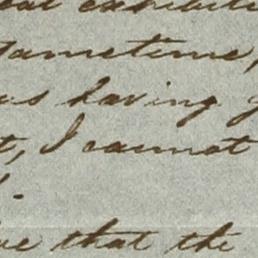 exhibiti
sametime,
us having g
t, I cannot
that the